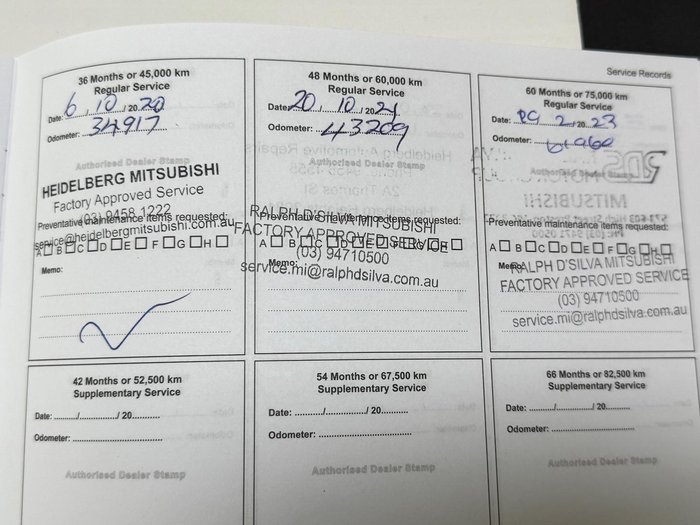 Service Records
36 Months or 45,000 km
Regular Service
Date: 6 / 10 / 2020
Odometer: 34917
Authorised Dealer Stamp
HEIDELBERG MITSUBISHI
Factory Approved Service
(03) 9458 1222
Preventative maintenance items requested:
service@heidelbergmitsubishi.com.au
A B C D E F G H
Memo:
48 Months or 60,000 km
Regular Service
Date: 20 / 10 / 2021
Odometer: 43209
Authorised Dealer Stamp
RALPH D'SILVA MITSUBISHI
Preventative maintenance items requested:
FACTORY APPROVED SERVICE
A B C D E F G H
(03) 94710500
Memo:
service.mi@ralphdsilva.com.au
60 Months or 75,000 km
Regular Service
Date: 09 / 2 / 2023
Odometer:
Authorised Dealer Stamp
Preventative maintenance items requested:
A B C D E F G H
Memo:
RALPH D'SILVA MITSUBISHI
FACTORY APPROVED SERVICE
(03) 94710500
service.mi@ralphdsilva.com.au
42 Months or 52,500 km
Supplementary Service
Date: ........../........../ 20..........
Odometer: ..............................
Authorised Dealer Stamp
54 Months or 67,500 km
Supplementary Service
Date: ........../........../ 20..........
Odometer: ..............................
Authorised Dealer Stamp
66 Months or 82,500 km
Supplementary Service
Date: ........../........../ 20..........
Odometer: ..............................
Authorised Dealer Stamp